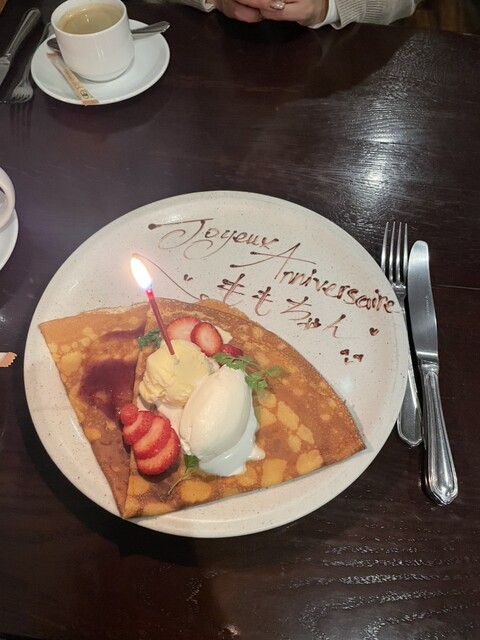 Joyeux
Anniversaire
ももちゃん